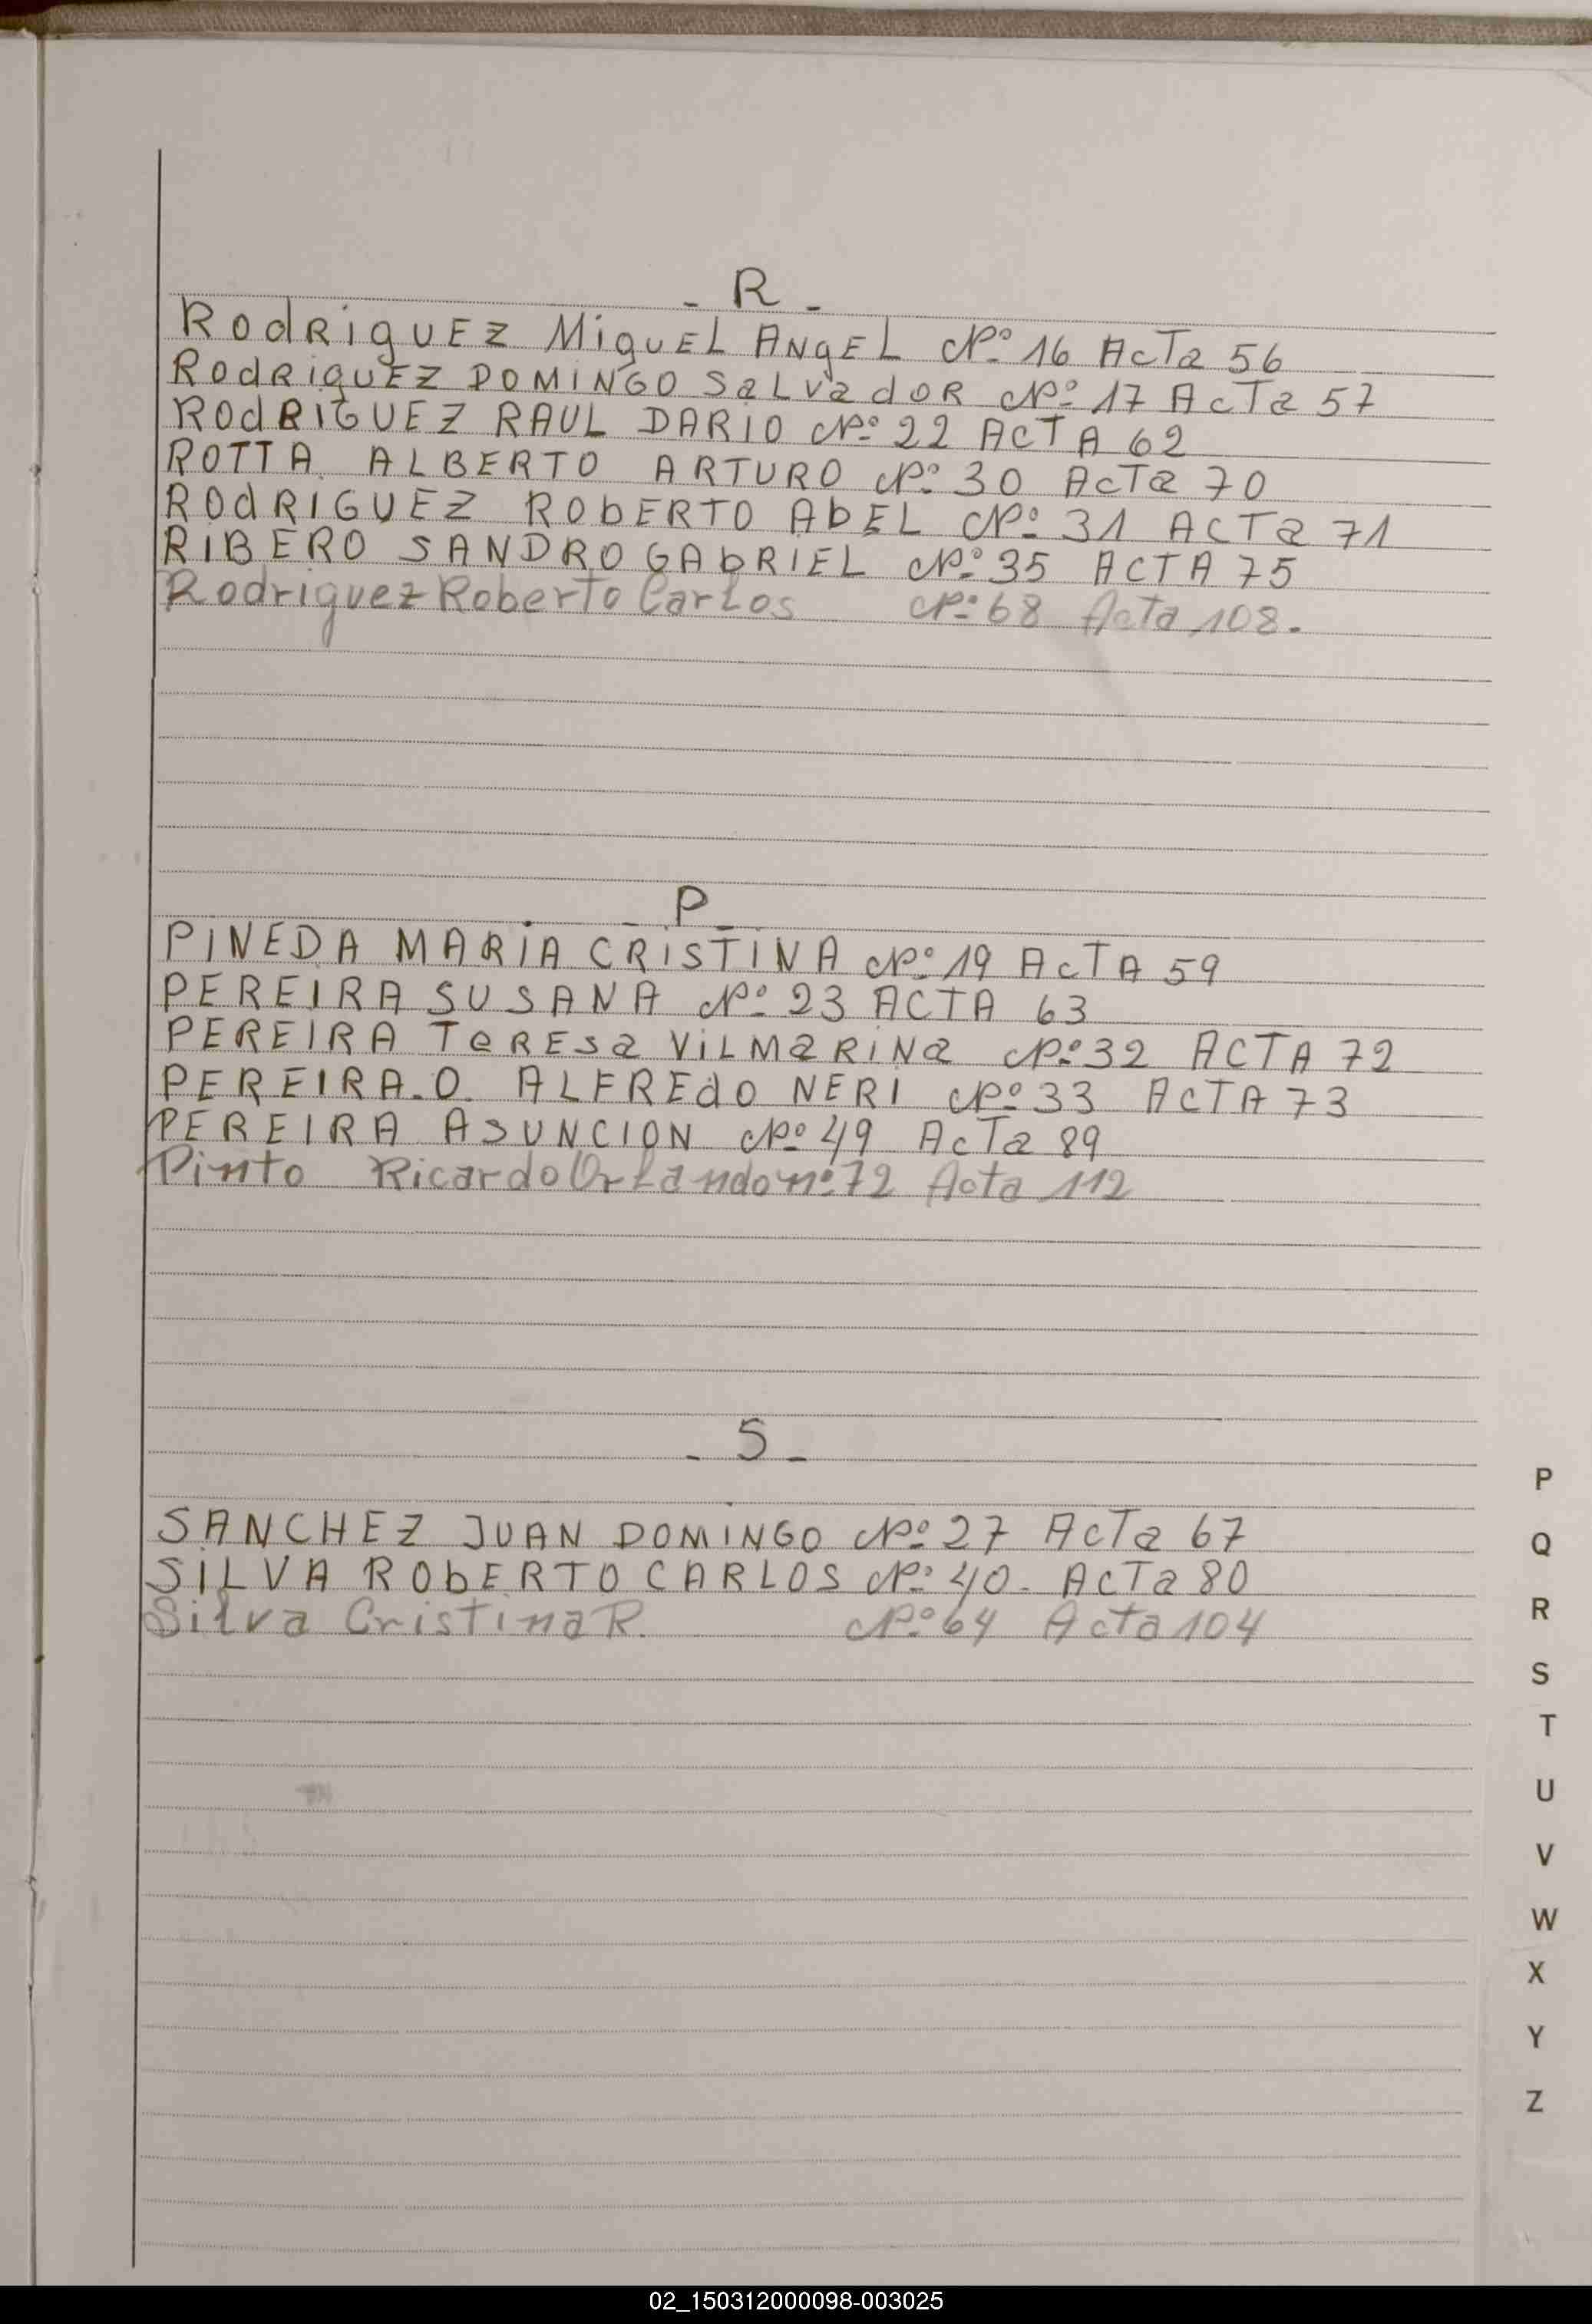 - R -
RodRiguEZ MiguEL ANgEL Nº 16 AcTa 56
RodRiguEZ DOMINGO SaLVadOR Nº 17 AcTa 57
ROdRIGUEZ RAUL DARIO Nº 22 ACTA 62
ROTTA ALBERTO ARTURO Nº 30 AcTa 70
RODRIGUEZ ROBERTO AbEL Nº 31 ACTa 71
RIBERO SANDRO GAbRIEL Nº 35 ACTA 75
Rodriguez Roberto Carlos Nº 68 Acta 108.
- P -
PINEDA MARIA CRISTINA Nº 19 AcTA 59
PEREIRA SUSANA Nº 23 ACTA 63
PEREIRA TeREsa ViLMaRINa Nº 32 ACTA 72
PEREIRA.O. ALFREdO NERI Nº 33 ACTA 73
PEREIRA ASUNCION Nº 49 AcTa 89
Pinto Ricardo Orlando nº 72 Acta 112
- S -
SANCHEZ JUAN DOMINGO Nº 27 AcTa 67
SILVA ROBERTO CARLOS Nº 40. AcTa 80
Silva Cristina R. Nº 64 Acta 104
P
Q
R
S
T
U
V
W
X
Y
Z
02_150312000098-003025